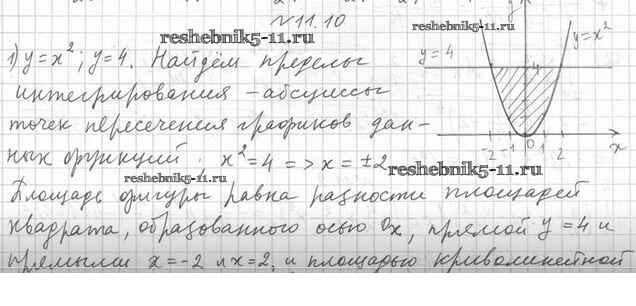 №11.10
1) y=x²; y=4. Найдём пределы
интегрирования – абсциссы
точек пересечения графиков дан-
ных функций; x²=4 => x=±2
Площадь фигуры равна разности площадей
квадрата, образованного осью Ox, прямой y=4 и
прямыми x=-2 и x=2, и площадью криволинейной
reshebnik5-11.ru
reshebnik5-11.ru
reshebnik5-11.ru
reshebnik5-11.ru
y
y=4
y=x²
4
-2 -1 0 1 2 x